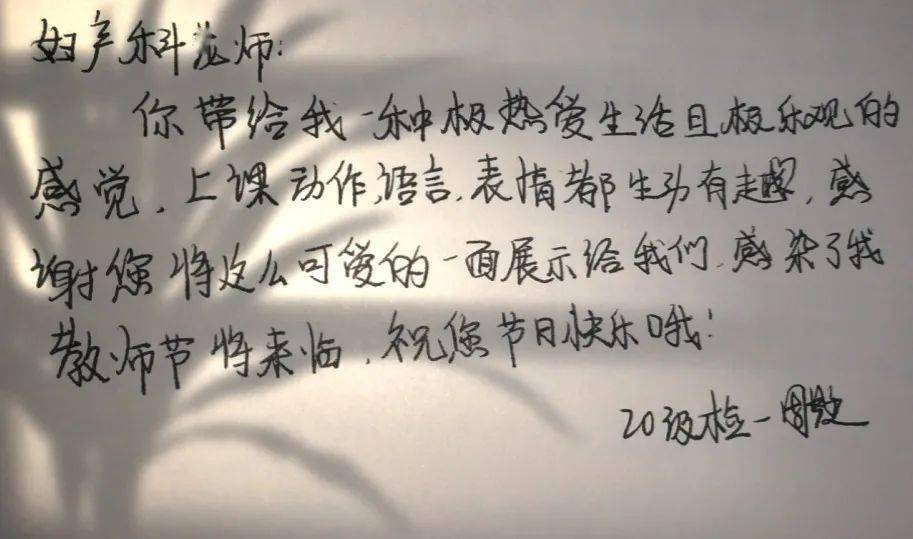 妇产科老师:
你带给我一种极热爱生活且极乐观的
感觉,上课动作,语言,表情都生动有趣,感
谢您将这么可爱的一面展示给我们,感染了我
教师节将来临,祝您节日快乐哦!
20级检一